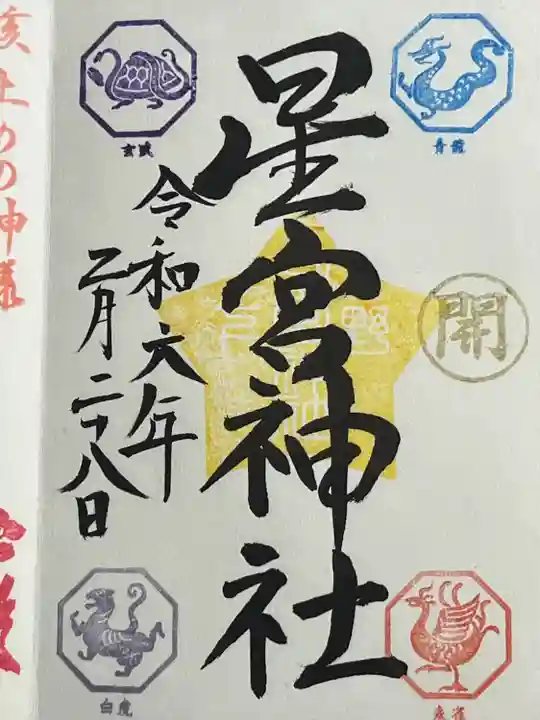 青龍
開
朱雀
星宮神社
玄武
令和六年
二月二十八日
白虎
亥止めの神様